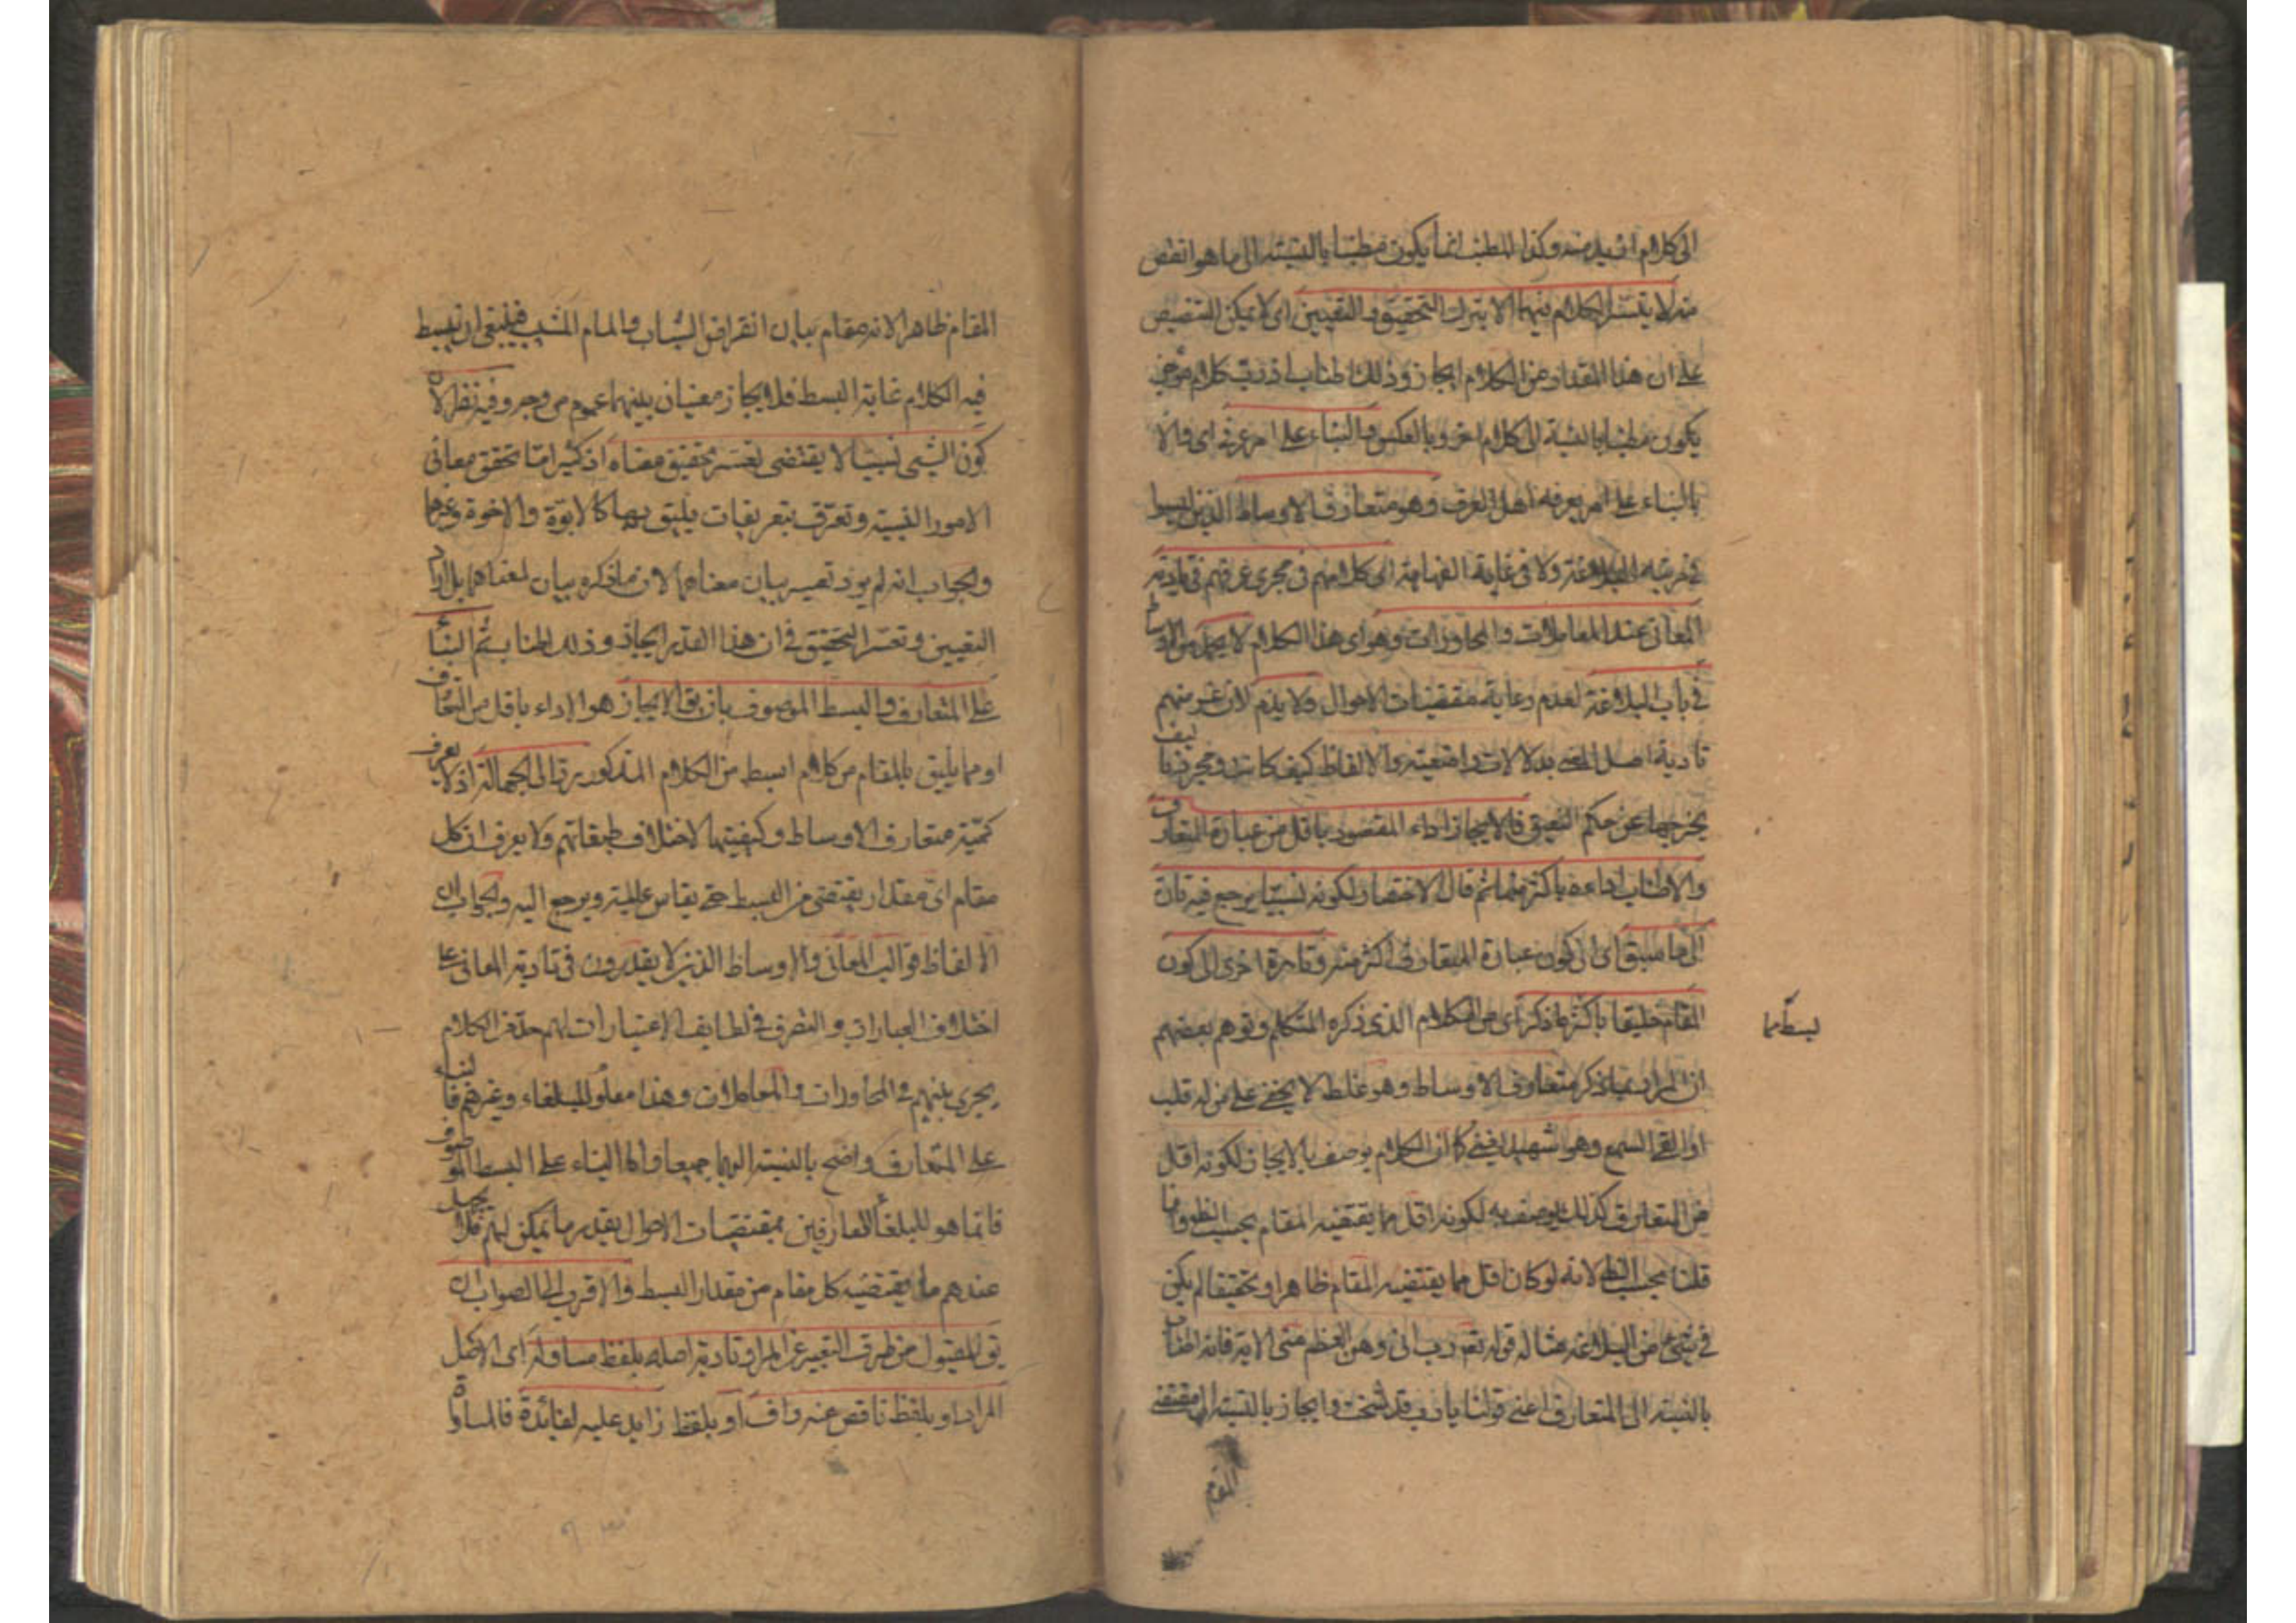 الى كلام ازيد منه وكذا المطنب انما يكون مطنبا بالنسبة الى ما هو انقص
منه لا يتيسر الكلام فيهما الا بترك التحقيق والتعيين اى لا يمكن التنصيص
على ان هذا المقدار من الكلام ايجاز وذلك اطناب اذ رب كلام موجز
يكون مطنبا بالنسبة الى كلام اخر وبالعكس والبناء على امر عرفى اى والا
بالبناء على امر يعرفه اهل العرف وهو متعارف الاوساط الذين ليسوا
فى مرتبة البلاغة ولا فى غاية الفهاهة اى كلامهم فى مجرى عرفهم فى تادية
المعانى عند المعاملات والمحاورات وهو اى هذا الكلام لا يحمد من الاوساط
فى باب البلاغة لعدم رعاية مقتضيات الاحوال ولا يذم لان غرضهم
تادية اصل المعنى بدلالات وضعية والالفاظ كيف كانت ومجرد تاليف
يخرجها عن حكم النعيق فالايجاز اداء المقصود باقل من عبارة المتعارف
والاطناب اداءه باكثر منها ثم قال الاختصار لكونه نسبيا يرجع فيه تارة
الى ما سبق اى الى كون عبارة المتعارف اكثر منه وتارة اخرى الى كون
المقام خليقا باكثر ما ذكر اى من الكلام الذى ذكره المتكلم وتوهم بعضهم
بسط مما
ان المراد بما ذكر متعارف الاوساط وهو غلط لا يخفى على من له قلب
او القى السمع وهو شهيد يعنى كما ان الكلام يوصف بالايجاز لكونه اقل
من المتعارف كذلك يوصف به لكونه اقل مما يقتضيه المقام بحسب الظ وانما
قلنا بحسب الظ لانه لو كان اقل مما يقتضيه المقام ظاهرا وتحقيقا لم يكن
فى شىء من البلاغة مثاله قوله تع رب انى وهن العظم منى الاية فانه اطناب
بالنسبة الى المتعارف اعنى قولنا يارب قد شخت وايجاز بالنسبة الى مقتضى
المقام
المقام ظاهرا لانه مقام بيان انقراض الشباب والمام المشيب فينبغى ان يبسط
فيه الكلام غاية البسط فللايجاز معنيان بينهما عموم من وجه وفيه نظر لان
كون الشىء نسبيا لا يقتضى تعسر تحقيق معناه اذ كثيرا ما تحقق معانى
الامور النسبية وتعرف بتعريفات يليق بها كالابوة والاخوة وغيرهما
والجواب انه لم يرد تعسر بيان معناهما لان ما ذكره بيان لمعناهما بل اراد
التعيين وتعسر التحقيق فى ان هذا القدر ايجاز وذلك اطناب ثم البناء
على المتعارف والبسط الموصوف بان يق الايجاز هو الاداء باقل من المتعارف
او مما يليق بالمقام من كلام ابسط من الكلام المذكور رد الى الجهالة اذ لا يعرف
كمية متعارف الاوساط وكيفيتها لاختلاف طبقاتهم ولا يعرف ان كل
مقام اى مقدار يقتضى من البسط حتى يقاس عليه ويرجع اليه والجواب ان
الالفاظ قوالب المعانى والاوساط الذين لا يقدرون فى تادية المعانى على
اختلاف العبارات والتصرف فى لطايف الاعتبارات لهم حد من الكلام
يجرى بينهم فى المحاورات والمعاملات وهذا معلوم للبلغاء وغيرهم فالبناء
على المتعارف واضح بالنسبة اليهما جميعا واما البناء على البسط الموصوف
فانما هو للبلغاء العارفين بمقتضيات الاحوال بقدر ما يمكن لهم فلا يجهل
عندهم ما يقتضيه كل مقام من مقدار البسط والاقرب الى الصواب ان
يق المقبول من طرق التعبير عن المراد تادية اصله بلفظ مساو له اى الاصل
المراد او بلفظ ناقص عنه واف او بلفظ زايد عليه لفائدة فالمساواة